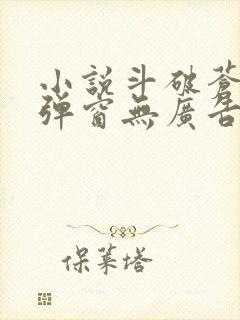 小說斗破蒼
彈窗無廣告
保萊塔